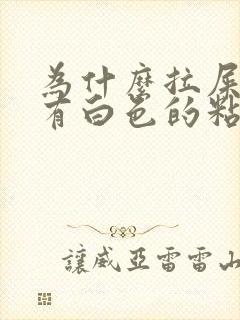 為什麼拉屎
有白色的粘
讓威亞雷雷山